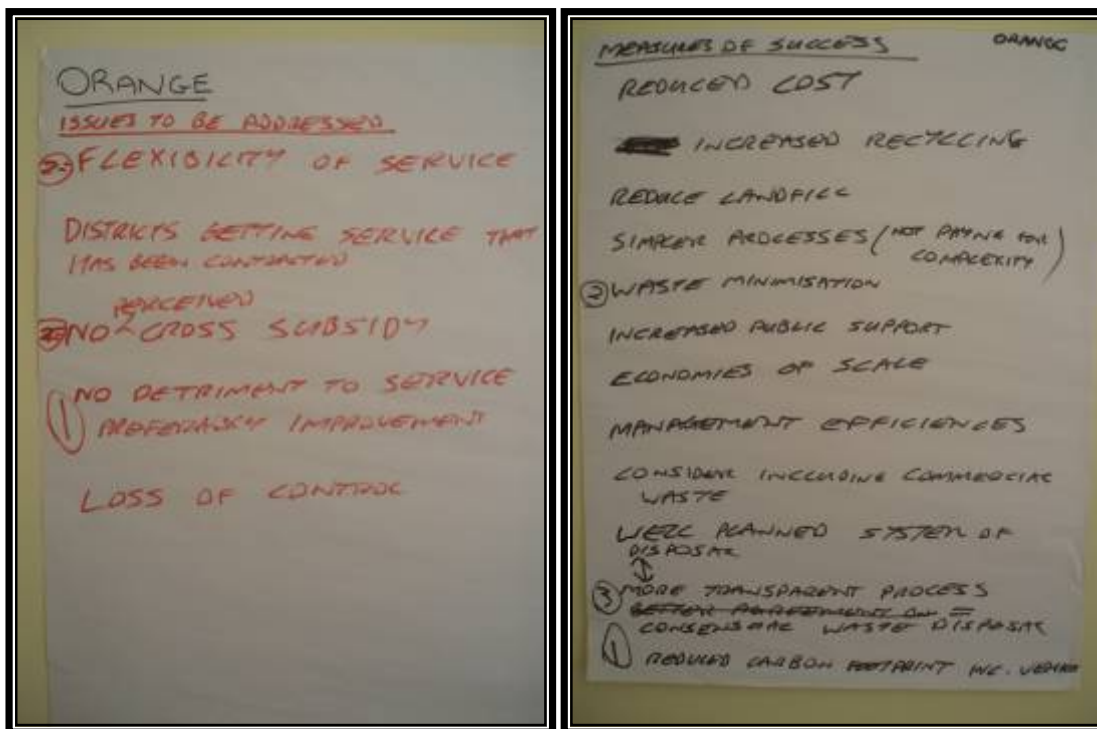 ORANGE
ISSUES TO BE ADDRESSED
FLEXIBILITY OF SERVICE
DISTRICTS GETTING SERVICE THAT
HAS BEEN CONTRACTED
PERCEIVED
NO ^ CROSS SUBSIDY
NO DETRIMENT TO SERVICE
① PREFERABLY IMPROVEMENT
LOSS OF CONTROL
MEASURES OF SUCCESS ORANGE
REDUCED COST
INCREASED RECYCLING
REDUCE LANDFILL
SIMPLER PROCESSES (NOT PAYING FOR
COMPLEXITY)
② WASTE MINIMISATION
INCREASED PUBLIC SUPPORT
ECONOMIES OF SCALE
MANAGEMENT EFFICIENCES
CONSIDER INCLUDING COMMERCIAL
WASTE
WELL PLANNED SYSTEM OF
DISPOSAL
↕
③ MORE TRANSPARENT PROCESS
BETTER AGREEMENT ON =
CONSENSUAL WASTE DISPOSAL
① REDUCED CARBON FOOTPRINT INC.